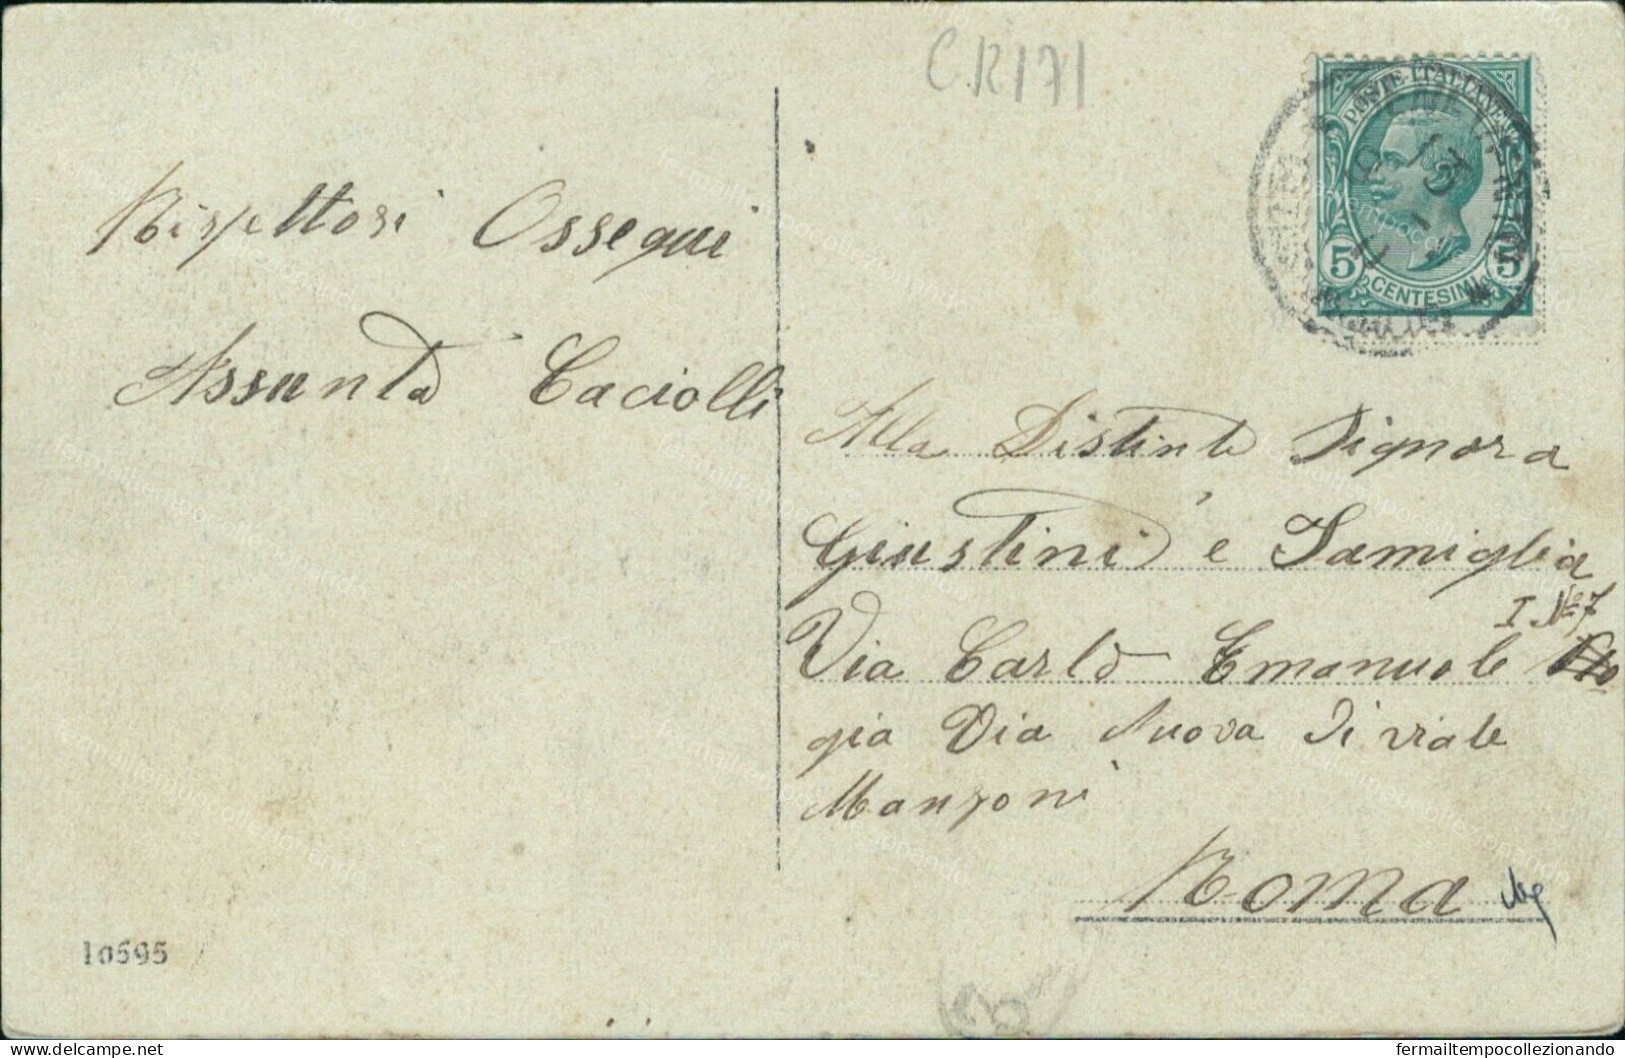 C.R171
POSTE ITALIANE
5 CENTESIMI 5
13
Rispettosi Ossequi
Assunta Caciolli
Alla Distinta Signora
Giustini e Famiglia
I. Nº 7
Via Carlo Emanuele
gia Via Nuova di viale
Manzoni
Roma
10595
3
delcampe.net
fermailtempocollezionando